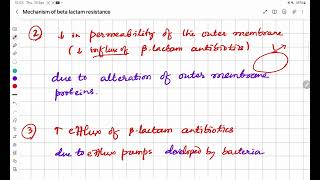 Mechanism of beta lactam resistance
② ↓ in permeability of the outer membrane
(↓ influx of β-lactam antibiotics)
due to alteration of outer membrane
proteins.
③ ↑ efflux of β-lactam antibiotics
due to efflux pumps developed by bacteria